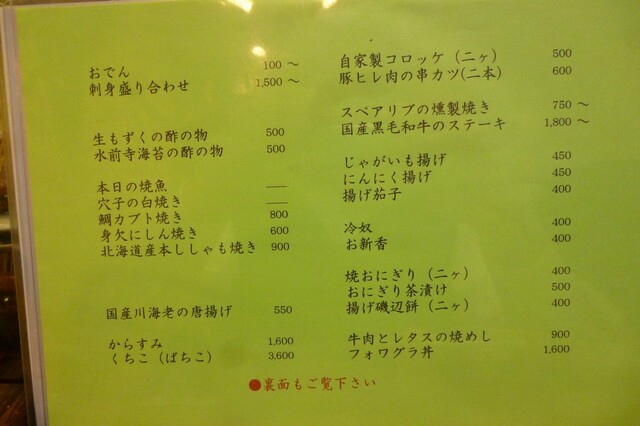 おでん 100 ～
刺身盛り合わせ 1,500 ～
生もずくの酢の物 500
水前寺海苔の酢の物 500
本日の焼魚 ――
穴子の白焼き ――
鯛カブト焼き 800
身欠にしん焼き 600
北海道産本ししゃも焼き 900
国産川海老の唐揚げ 550
からすみ 1,600
くちこ（ばちこ） 3,600
自家製コロッケ（二ヶ） 500
豚ヒレ肉の串カツ(二本) 600
スペアリブの燻製焼き 750 ～
国産黒毛和牛のステーキ 1,800 ～
じゃがいも揚げ 450
にんにく揚げ 450
揚げ茄子 400
冷奴 400
お新香 400
焼おにぎり（二ヶ） 400
おにぎり茶漬け 500
揚げ磯辺餅（二ヶ） 400
牛肉とレタスの焼めし 900
フォワグラ丼 1,600
●裏面もご覧下さい